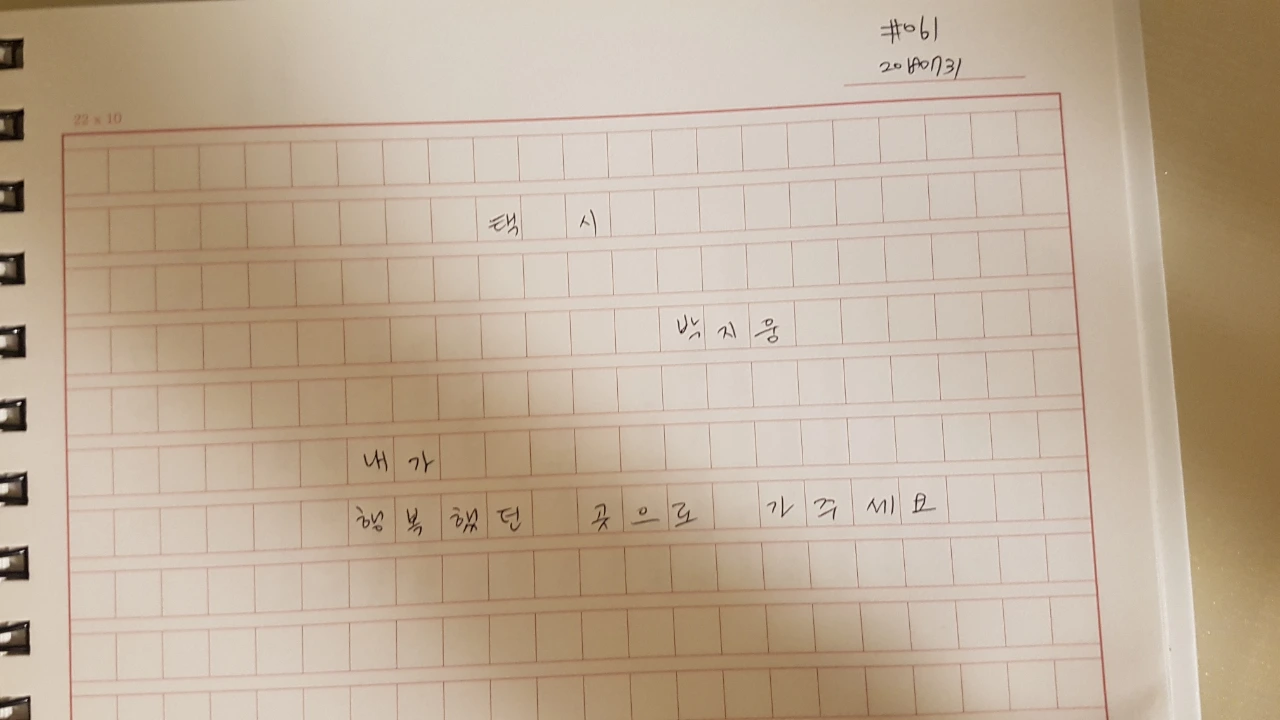 #061
20180731
22 x 10
택 시
박지웅
내가
행복했던 곳으로 가주세요